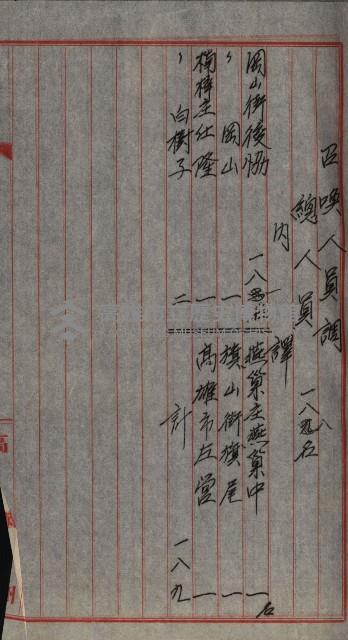 召喚人員調
總人員 一八八名
內譯
岡山街後協 一八 燕巢庄燕巢中 一名
〃 岡山 一 旗山街旗尾 一
楠梓庄仕隆 一 高雄市左營 一
〃 白樹子 二
計 一八九